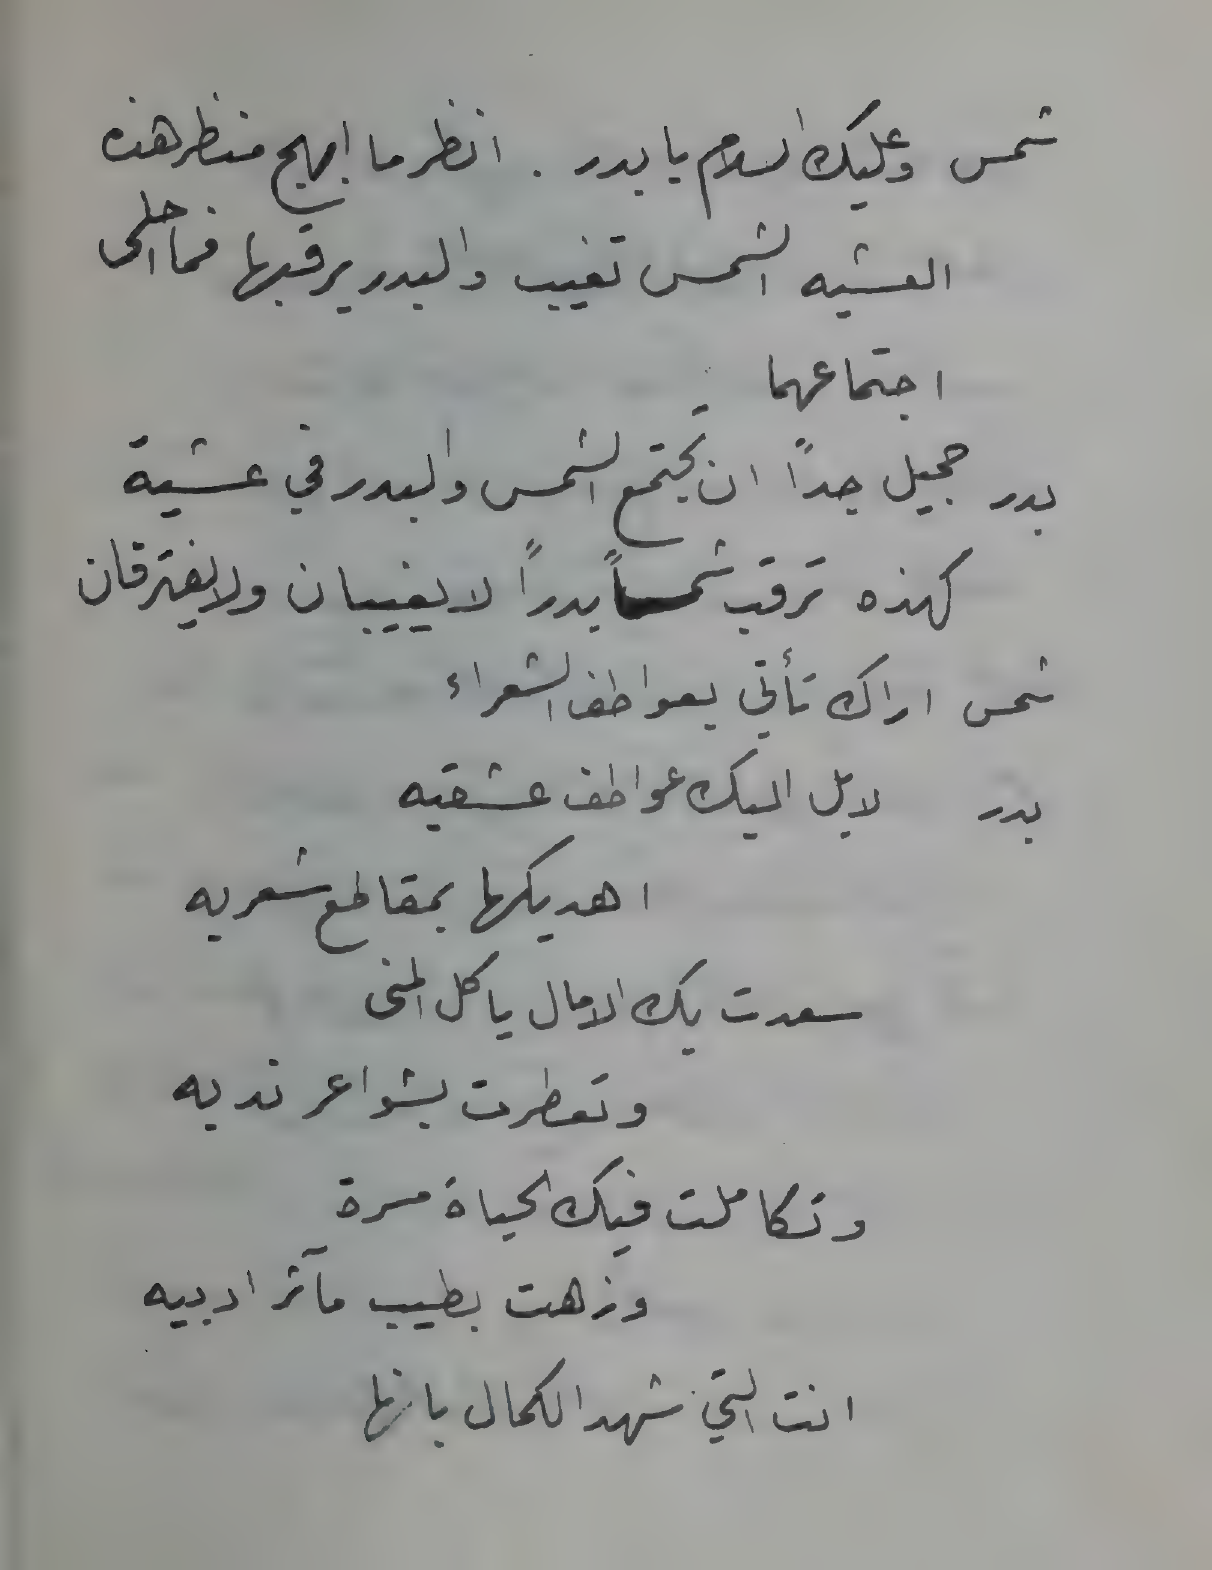 شمس وعليك السلام يا بدر . انظر ما ابهج منظر هذه
العشيه الشمس تغيب والبدر يرقبها فما احلى
اجتماعهما
بدر جميل جداً ان يجتمع الشمس والبدر في عشية
كهذه ترقب شمساً بدراً لا يغيبان ولا يفترقان
شمس اراك تأتي بعواطف الشعراء
بدر لا بل اليك عواطف عشقيه
اهديكها بمقاطع شعريه
سعدت بك الامال يا كل المنى
وتعطرت بشواعر نديه
وتكاملت فيك الحياة مسرة
وزهت بطيب مآثر ادبيه
انت التي شهد الكمال بانها